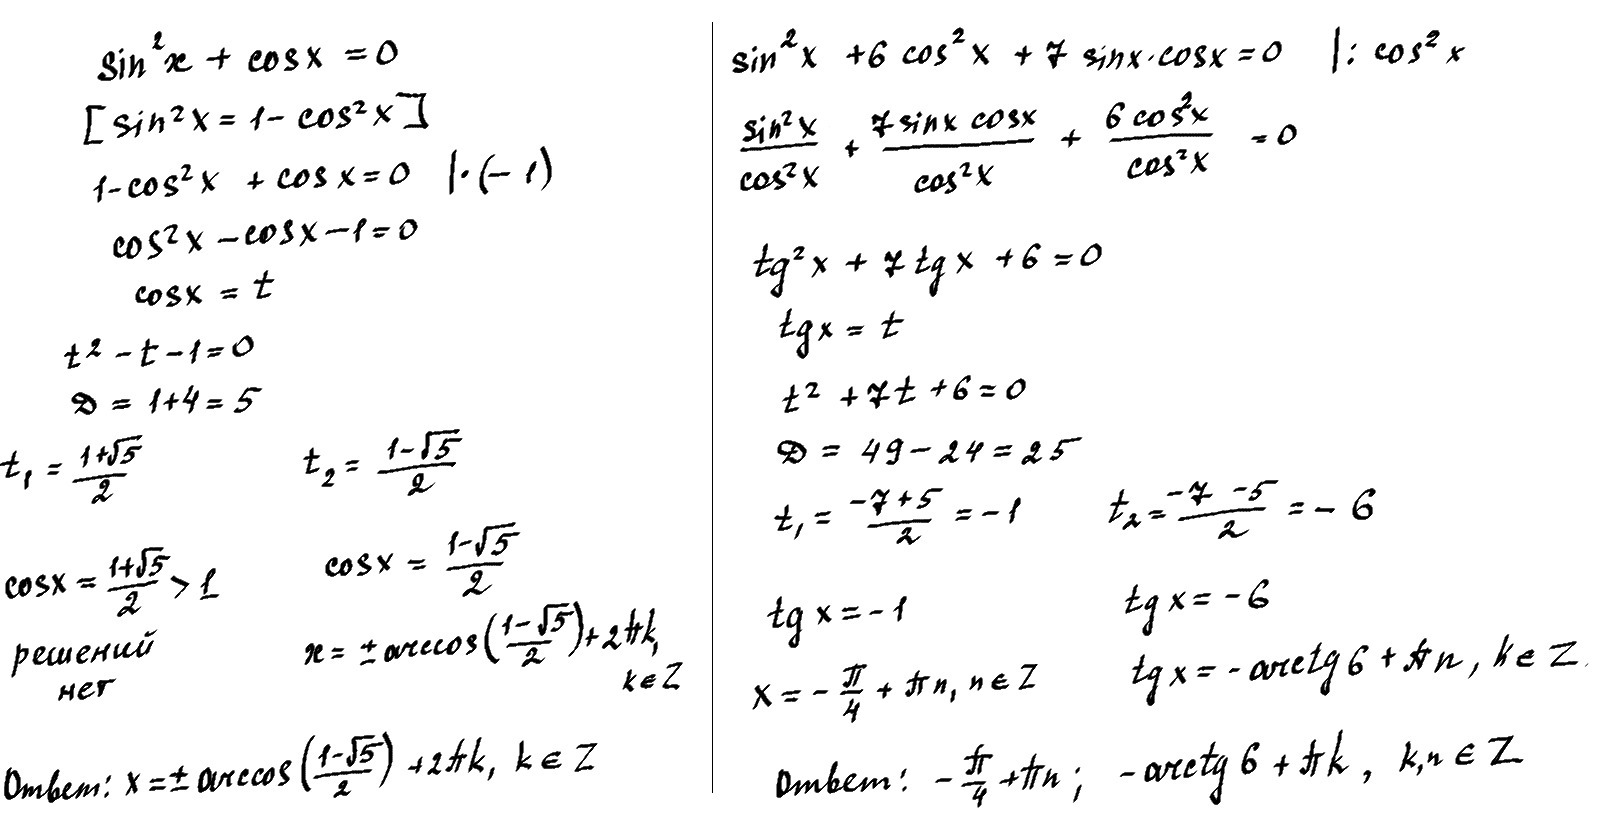 sin²x + cosx = 0
[sin²x = 1 - cos²x]
1-cos²x + cosx = 0 |·(-1)
cos²x - cosx - 1 = 0
cosx = t
t² - t - 1 = 0
D = 1+4 = 5
t₁ = (1+√5)/2 t₂ = (1-√5)/2
cosx = (1+√5)/2 > 1 cosx = (1-√5)/2
решений
нет
x = ± arccos((1-√5)/2) + 2πk,
k∈Z
Ответ: x = ± arccos((1-√5)/2) + 2πk, k ∈ Z
sin²x + 6 cos²x + 7 sinx·cosx = 0 |: cos²x
sin²x/cos²x + 7 sinx cosx/cos²x + 6 cos²x/cos²x = 0
tg²x + 7 tgx + 6 = 0
tgx = t
t² + 7t + 6 = 0
D = 49 - 24 = 25
t₁ = (-7+5)/2 = -1 t₂ = (-7-5)/2 = -6
tgx = -1 tgx = -6
x = -π/4 + πn, n ∈ Z tgx = -arctg6 + πn, k ∈ Z.
Ответ: -π/4 + πn; -arctg6 + πk, k,n ∈ Z